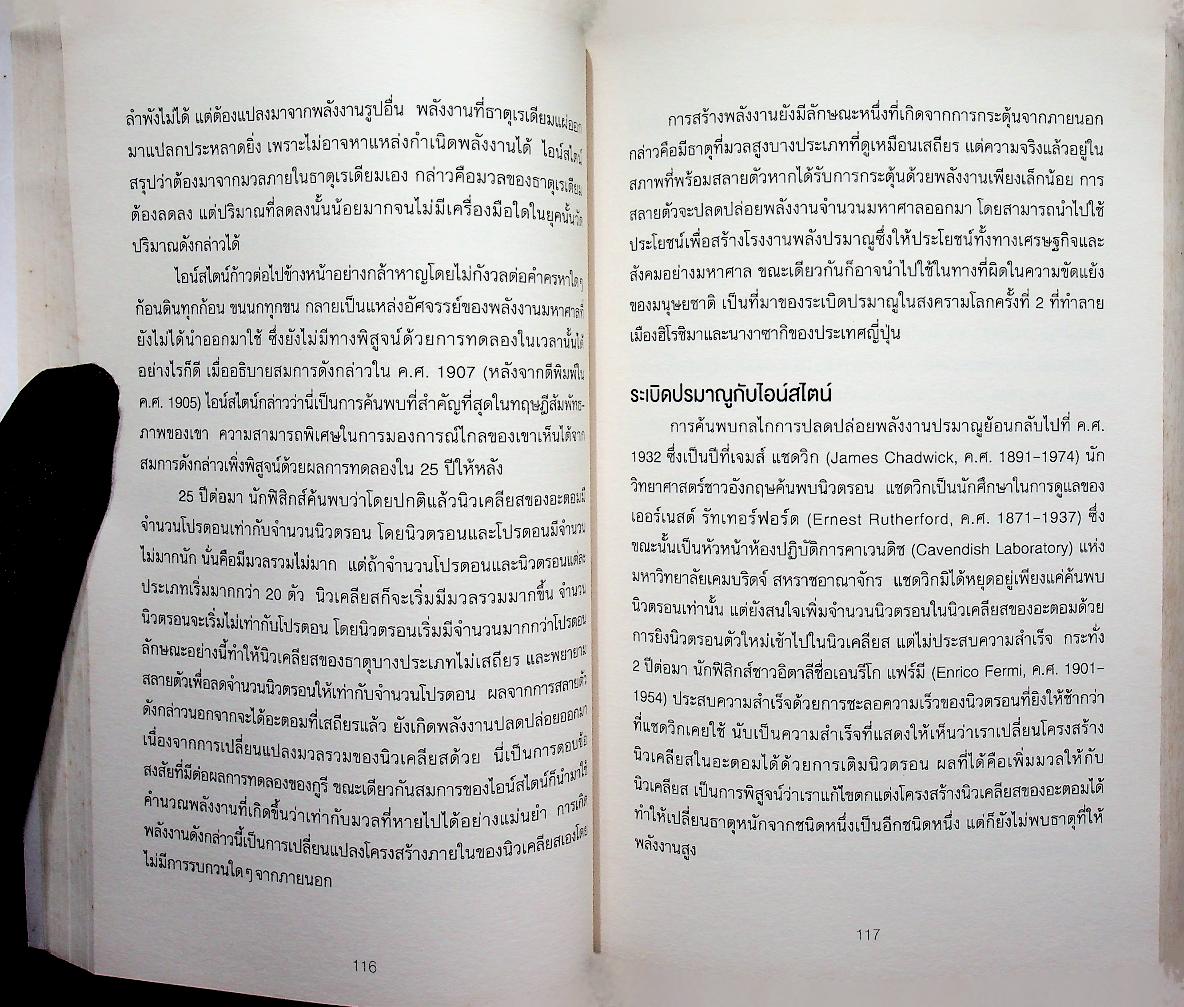 ลำพังไม่ได้ แต่ต้องแปลงมาจากพลังงานรูปอื่น พลังงานที่ธาตุเรเดียมแผ่ออก
มาแปลกประหลาดยิ่ง เพราะไม่อาจหาแหล่งกำเนิดพลังงานได้ ไอน์สไตน์
สรุปว่าต้องมาจากมวลภายในธาตุเรเดียมเอง กล่าวคือมวลของธาตุเรเดียม
ต้องลดลง แต่ปริมาณที่ลดลงนั้นน้อยมากจนไม่มีเครื่องมือใดในยุคนั้นวัด
ปริมาณดังกล่าวได้
ไอน์สไตน์ก้าวต่อไปข้างหน้าอย่างกล้าหาญโดยไม่กังวลต่อคำครหาใดๆ
ก้อนดินทุกก้อน ขนนกทุกขน กลายเป็นแหล่งอัศจรรย์ของพลังงานมหาศาลที่
ยังไม่ได้นำออกมาใช้ ซึ่งยังไม่มีทางพิสูจน์ด้วยการทดลองในเวลานั้นได้
อย่างไรก็ดี เมื่ออธิบายสมการดังกล่าวใน ค.ศ. 1907 (หลังจากตีพิมพ์ใน
ค.ศ. 1905) ไอน์สไตน์กล่าวว่านี่เป็นการค้นพบที่สำคัญที่สุดในทฤษฎีสัมพัทธ-
ภาพของเขา ความสามารถพิเศษในการมองการณ์ไกลของเขาเห็นได้จาก
สมการดังกล่าวเพิ่งพิสูจน์ด้วยผลการทดลองใน 25 ปีให้หลัง
25 ปีต่อมา นักฟิสิกส์ค้นพบว่าโดยปกติแล้วนิวเคลียสของอะตอมมี
จำนวนโปรตอนเท่ากับจำนวนนิวตรอน โดยนิวตรอนและโปรตอนมีจำนวน
ไม่มากนัก นั่นคือมีมวลรวมไม่มาก แต่ถ้าจำนวนโปรตอนและนิวตรอนแต่ละ
ประเภทเริ่มมากกว่า 20 ตัว นิวเคลียสก็จะเริ่มมีมวลรวมมากขึ้น จำนวน
นิวตรอนจะเริ่มไม่เท่ากับโปรตอน โดยนิวตรอนเริ่มมีจำนวนมากกว่าโปรตอน
ลักษณะอย่างนี้ทำให้นิวเคลียสของธาตุบางประเภทไม่เสถียร และพยายาม
สลายตัวเพื่อลดจำนวนนิวตรอนให้เท่ากับจำนวนโปรตอน ผลจากการสลายตัว
ดังกล่าวนอกจากจะได้อะตอมที่เสถียรแล้ว ยังเกิดพลังงานปลดปล่อยออกมา
เนื่องจากการเปลี่ยนแปลงมวลรวมของนิวเคลียสด้วย นี่เป็นการตอบข้อ
สงสัยที่มีต่อผลการทดลองของกูรี ขณะเดียวกันสมการของไอน์สไตน์ก็นำมาใช้
คำนวณพลังงานที่เกิดขึ้นว่าเท่ากับมวลที่หายไปได้อย่างแม่นยำ การเกิด
พลังงานดังกล่าวนี้เป็นการเปลี่ยนแปลงโครงสร้างภายในของนิวเคลียสเองโดย
ไม่มีการรบกวนใดๆ จากภายนอก
116
การสร้างพลังงานยังมีลักษณะหนึ่งที่เกิดจากการกระตุ้นจากภายนอก
กล่าวคือมีธาตุที่มวลสูงบางประเภทที่ดูเหมือนเสถียร แต่ความจริงแล้วอยู่ใน
สภาพที่พร้อมสลายตัวหากได้รับการกระตุ้นด้วยพลังงานเพียงเล็กน้อย การ
สลายตัวจะปลดปล่อยพลังงานจำนวนมหาศาลออกมา โดยสามารถนำไปใช้
ประโยชน์เพื่อสร้างโรงงานพลังปรมาณูซึ่งให้ประโยชน์ทั้งทางเศรษฐกิจและ
สังคมอย่างมหาศาล ขณะเดียวกันก็อาจนำไปใช้ในทางที่ผิดในความขัดแย้ง
ของมนุษยชาติ เป็นที่มาของระเบิดปรมาณูในสงครามโลกครั้งที่ 2 ที่ทำลาย
เมืองฮิโรชิมาและนางาซากิของประเทศญี่ปุ่น
ระเบิดปรมาณูกับไอน์สไตน์
การค้นพบกลไกการปลดปล่อยพลังงานปรมาณูย้อนกลับไปที่ ค.ศ.
1932 ซึ่งเป็นปีที่เจมส์ แชดวิก (James Chadwick, ค.ศ. 1891–1974) นัก
วิทยาศาสตร์ชาวอังกฤษค้นพบนิวตรอน แชดวิกเป็นนักศึกษาในการดูแลของ
เออร์เนสต์ รัทเทอร์ฟอร์ด (Ernest Rutherford, ค.ศ. 1871–1937) ซึ่ง
ขณะนั้นเป็นหัวหน้าห้องปฏิบัติการคาเวนดิช (Cavendish Laboratory) แห่ง
มหาวิทยาลัยเคมบริดจ์ สหราชอาณาจักร แชดวิกมิได้หยุดอยู่เพียงแค่ค้นพบ
นิวตรอนเท่านั้น แต่ยังสนใจเพิ่มจำนวนนิวตรอนในนิวเคลียสของอะตอมด้วย
การยิงนิวตรอนตัวใหม่เข้าไปในนิวเคลียส แต่ไม่ประสบความสำเร็จ กระทั่ง
2 ปีต่อมา นักฟิสิกส์ชาวอิตาลีชื่อเอนรีโก แฟร์มี (Enrico Fermi, ค.ศ. 1901–
1954) ประสบความสำเร็จด้วยการชะลอความเร็วของนิวตรอนที่ยิงให้ช้ากว่า
ที่แชดวิกเคยใช้ นับเป็นความสำเร็จที่แสดงให้เห็นว่าเราเปลี่ยนโครงสร้าง
นิวเคลียสในอะตอมได้ด้วยการเติมนิวตรอน ผลที่ได้คือเพิ่มมวลให้กับ
นิวเคลียส เป็นการพิสูจน์ว่าเราแก้ไขดกแต่งโครงสร้างนิวเคลียสของอะตอมได้
ทำให้เปลี่ยนธาตุหนักจากชนิดหนึ่งเป็นอีกชนิดหนึ่ง แต่ก็ยังไม่พบธาตุที่ให้
พลังงานสูง
117